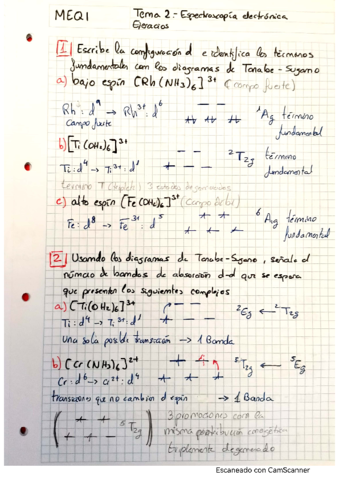 MEQI
Tema 2 - Espectroscopía electrónica
Ejercicios
1 Escribe la configuración d e identifica los términos
fundamentales con los diagramas de Tanabe - Sugano
a) bajo espín [Rh(NH3)6]3+ (campo fuerte)
Rh: d9 → Rh3+: d6
Campo fuerte
1Ag término
fundamental
b) [Ti(OH2)6]3+
Ti: d4 → Ti3+: d1
2T2g término
fundamental
término T (triplete) 3 estados degenerados
c) alto espín [Fe(OH2)6]3+ (Campo débil)
Fe: d8 → Fe3+: d5
6Ag término
fundamental
2 Usando los diagramas de Tanabe-Sugano, señale el
número de bandas de absorción d-d que se espera
que presenten los siguientes complejos
a) [Ti(OH2)6]3+
Ti: d4 → Ti3+: d1
2Eg ← 2T2g
Una sola posible transición → 1 Banda
b) [Cr(NH3)6]2+
Cr: d6 → Cr2+: d4
5T2g ← 5Eg
transiciones que no cambian el espín → 1 Banda
5T2g
3 promociones con la
misma
triplemente degenerado
Escaneado con CamScanner